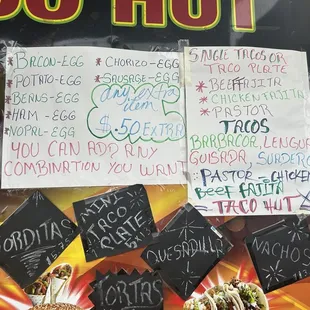 HUT
* BACON-EGG
* POTATO-EGG
* BEANS-EGG
* HAM-EGG
* NOPAL-EGG
* CHORIZO-EGG
* SAUSAGE-EGG
any extra
item
$.50 EXTRA
YOU CAN ADD ANY
COMBINATION YOU WANT
SINGLE TACOS OR
TACO PLATE
* BEEF FAJITA
* CHICKEN FAJITA
* PASTOR
TACOS
BARBACOA, LENGUA
GUISADA, SUADERO
PASTOR - CHICKEN
BEEF FAJITA
TACO HUT
GORDITAS
MINI
TACO
PLATE
QUESADILLA
NACHOS
TORTAS